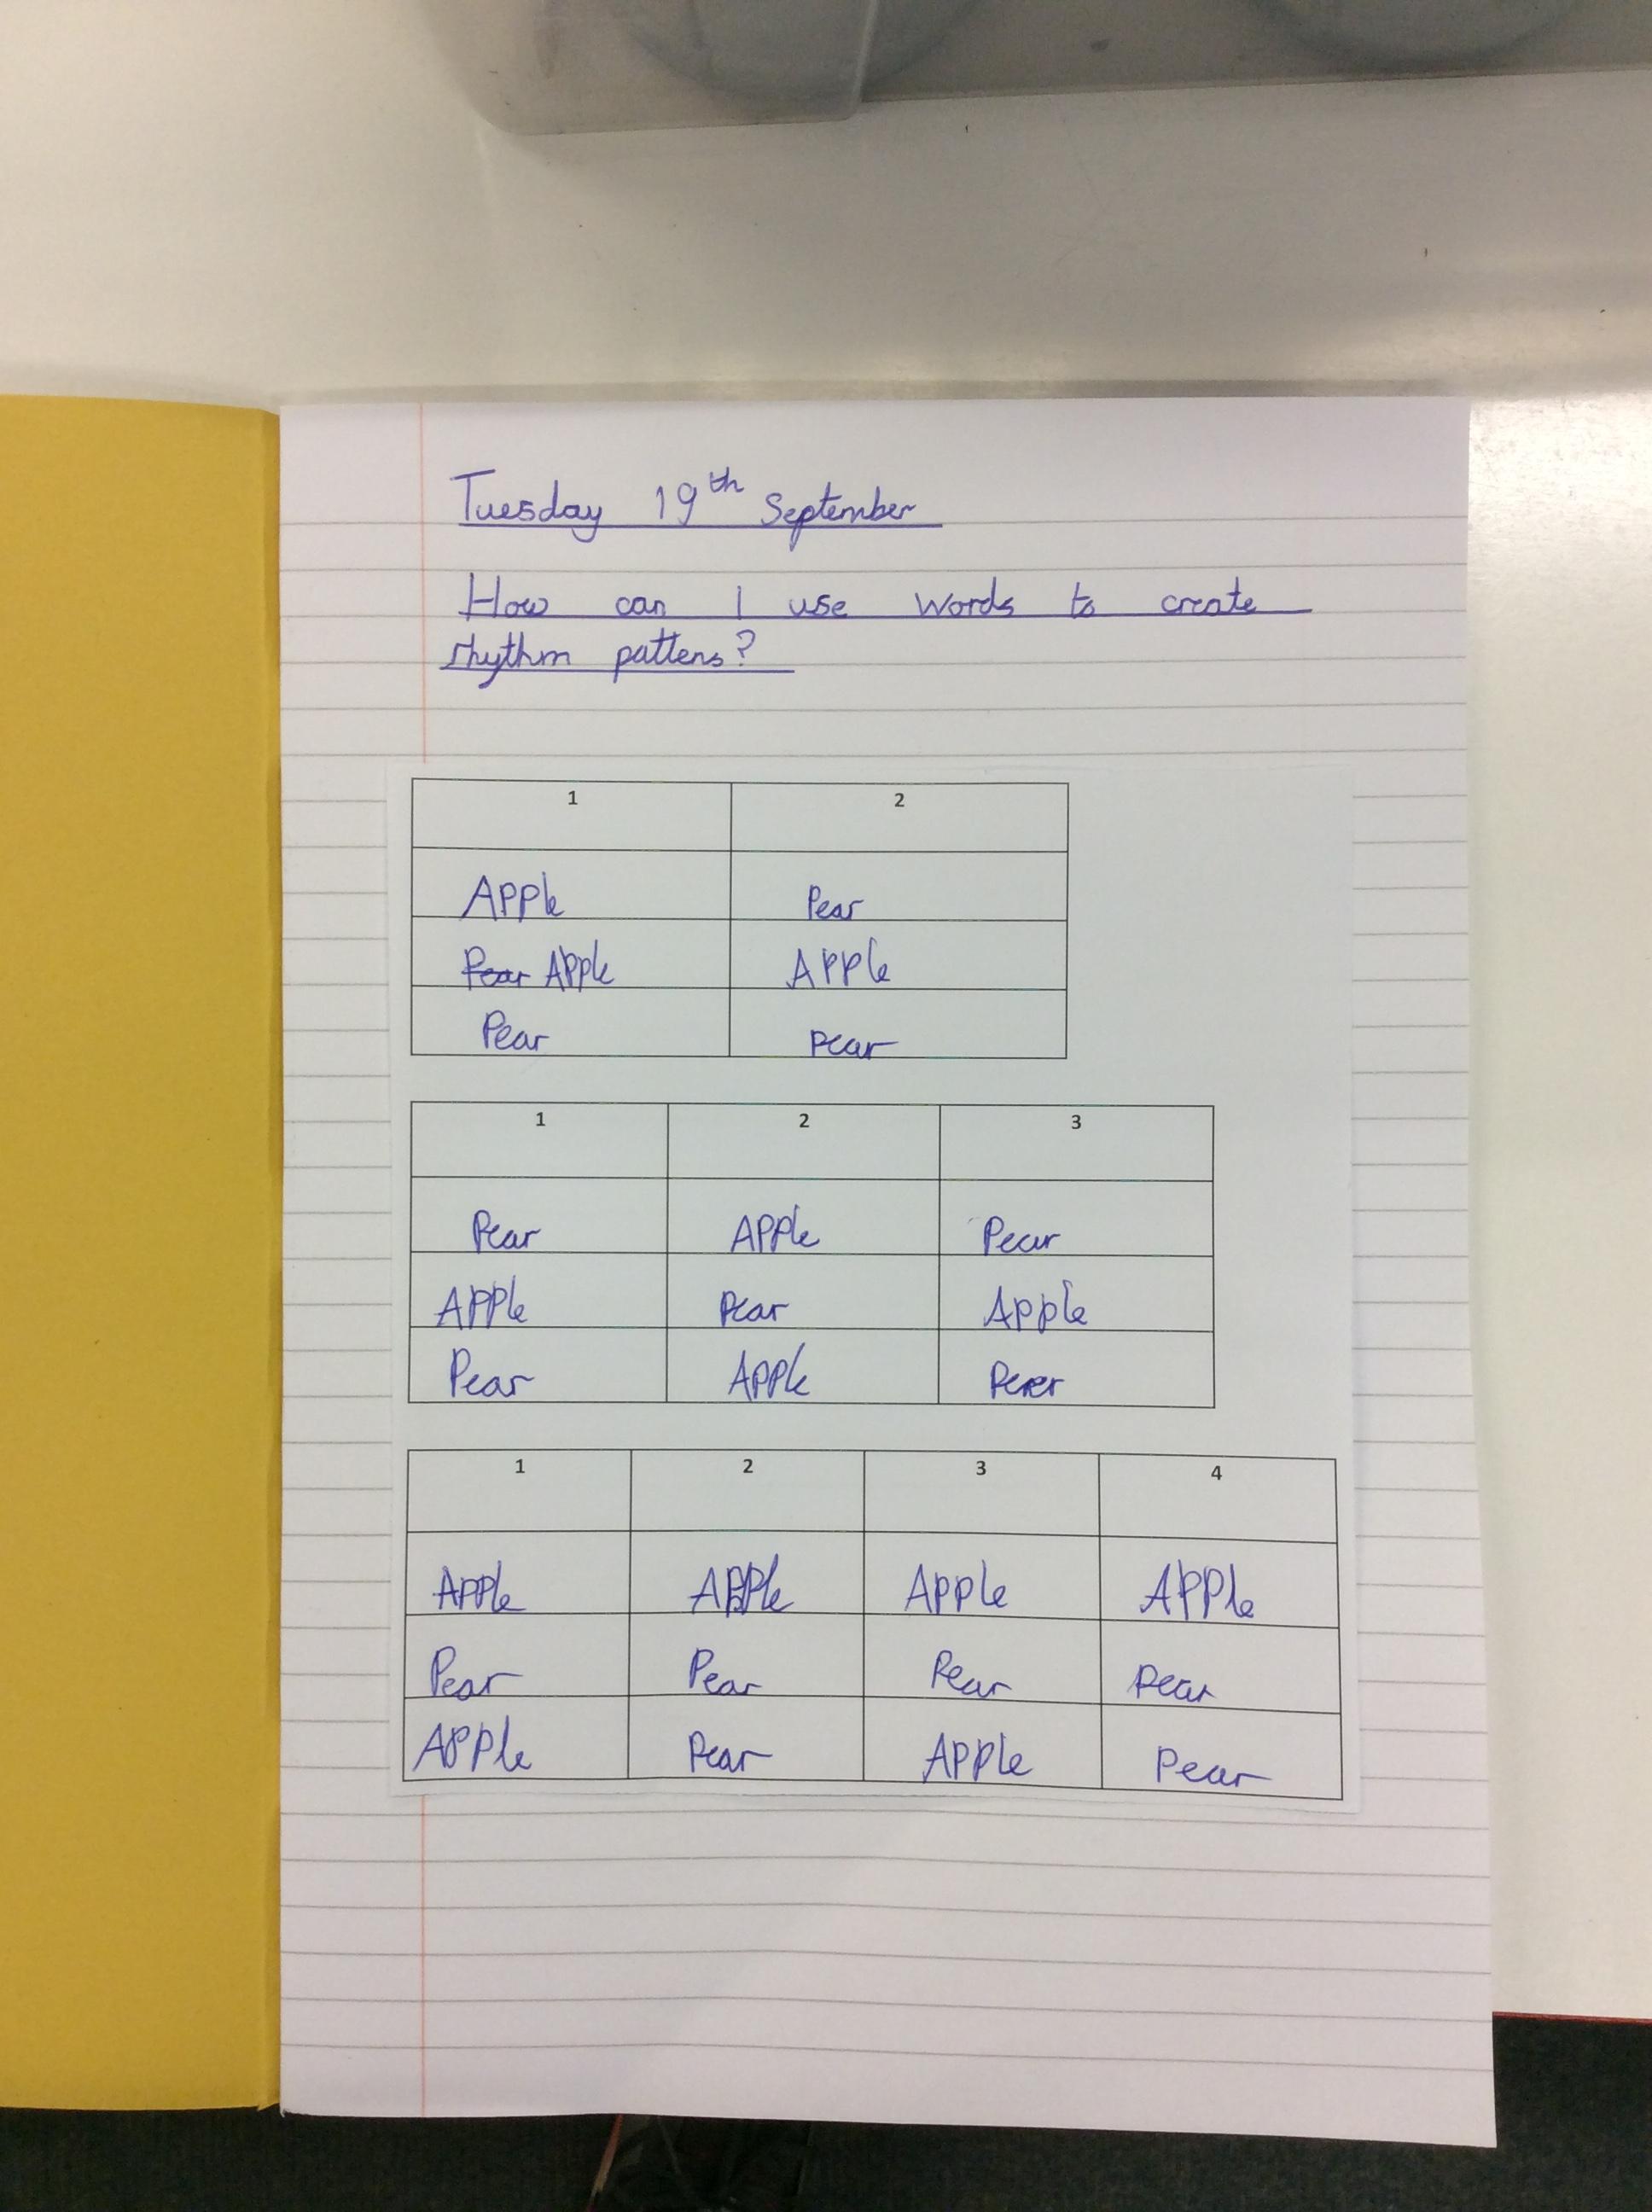 Tuesday 19th September
How can I use words to create
rhythm pattens?
1 2
Apple Pear
Pear Apple Apple
Pear Pear
1 2 3
Pear Apple Pear
Apple Pear Apple
Pear Apple Pear
1 2 3 4
Apple Apple Apple Apple
Pear Pear Pear Pear
Apple Pear Apple Pear